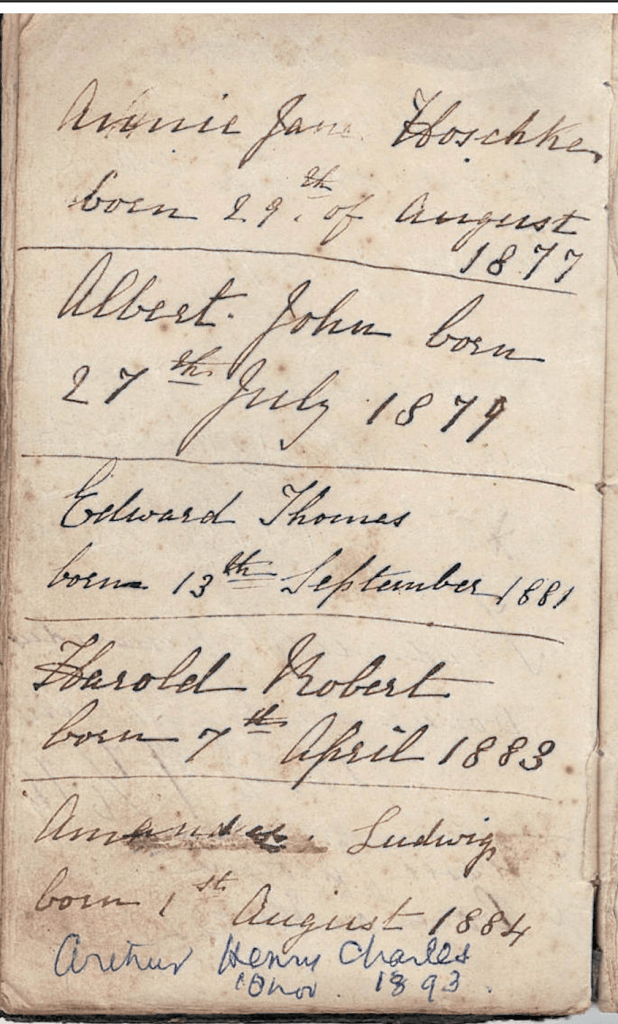 Annie Jane Hoschke
born 29th of August
1877
Albert John born
27th July 1879
Edward Thomas
born 13th September 1881
Harold Robert
born 7th April 1883
Ludwig
born 1st August 1884
Arthur Henry Charles
Nov. 1893.